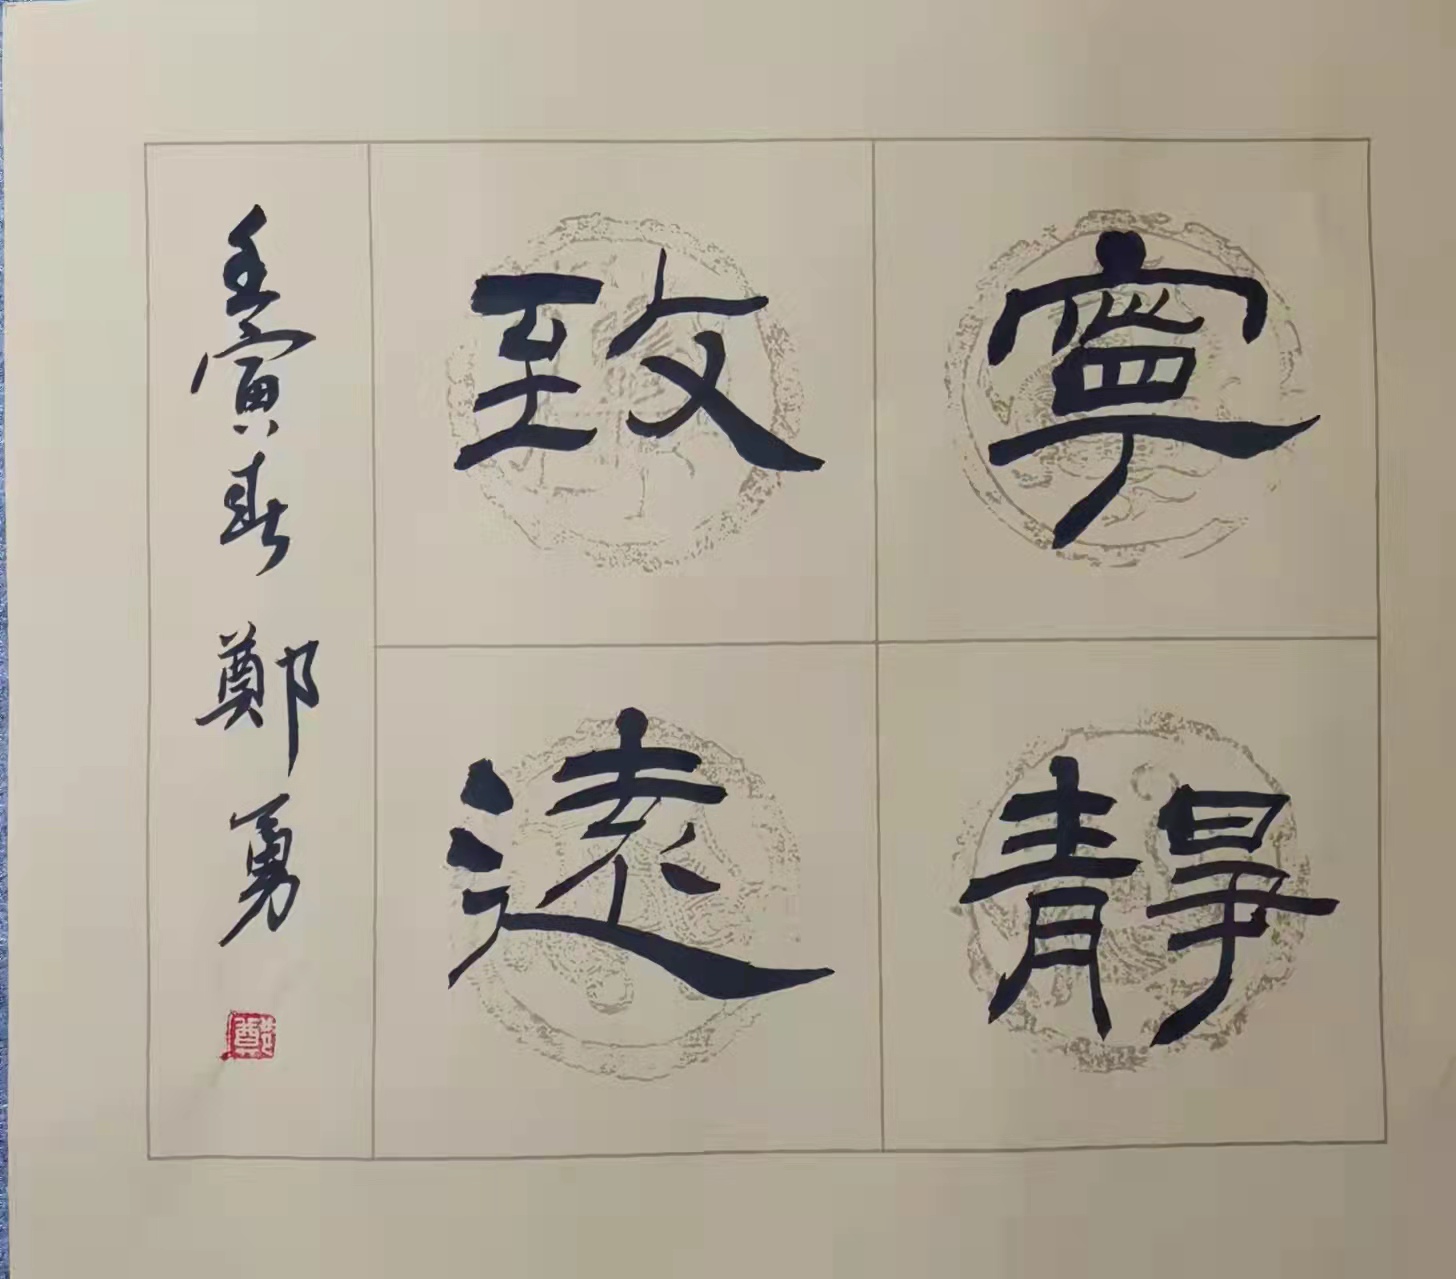 寧靜
致遠
壬寅春 鄭勇